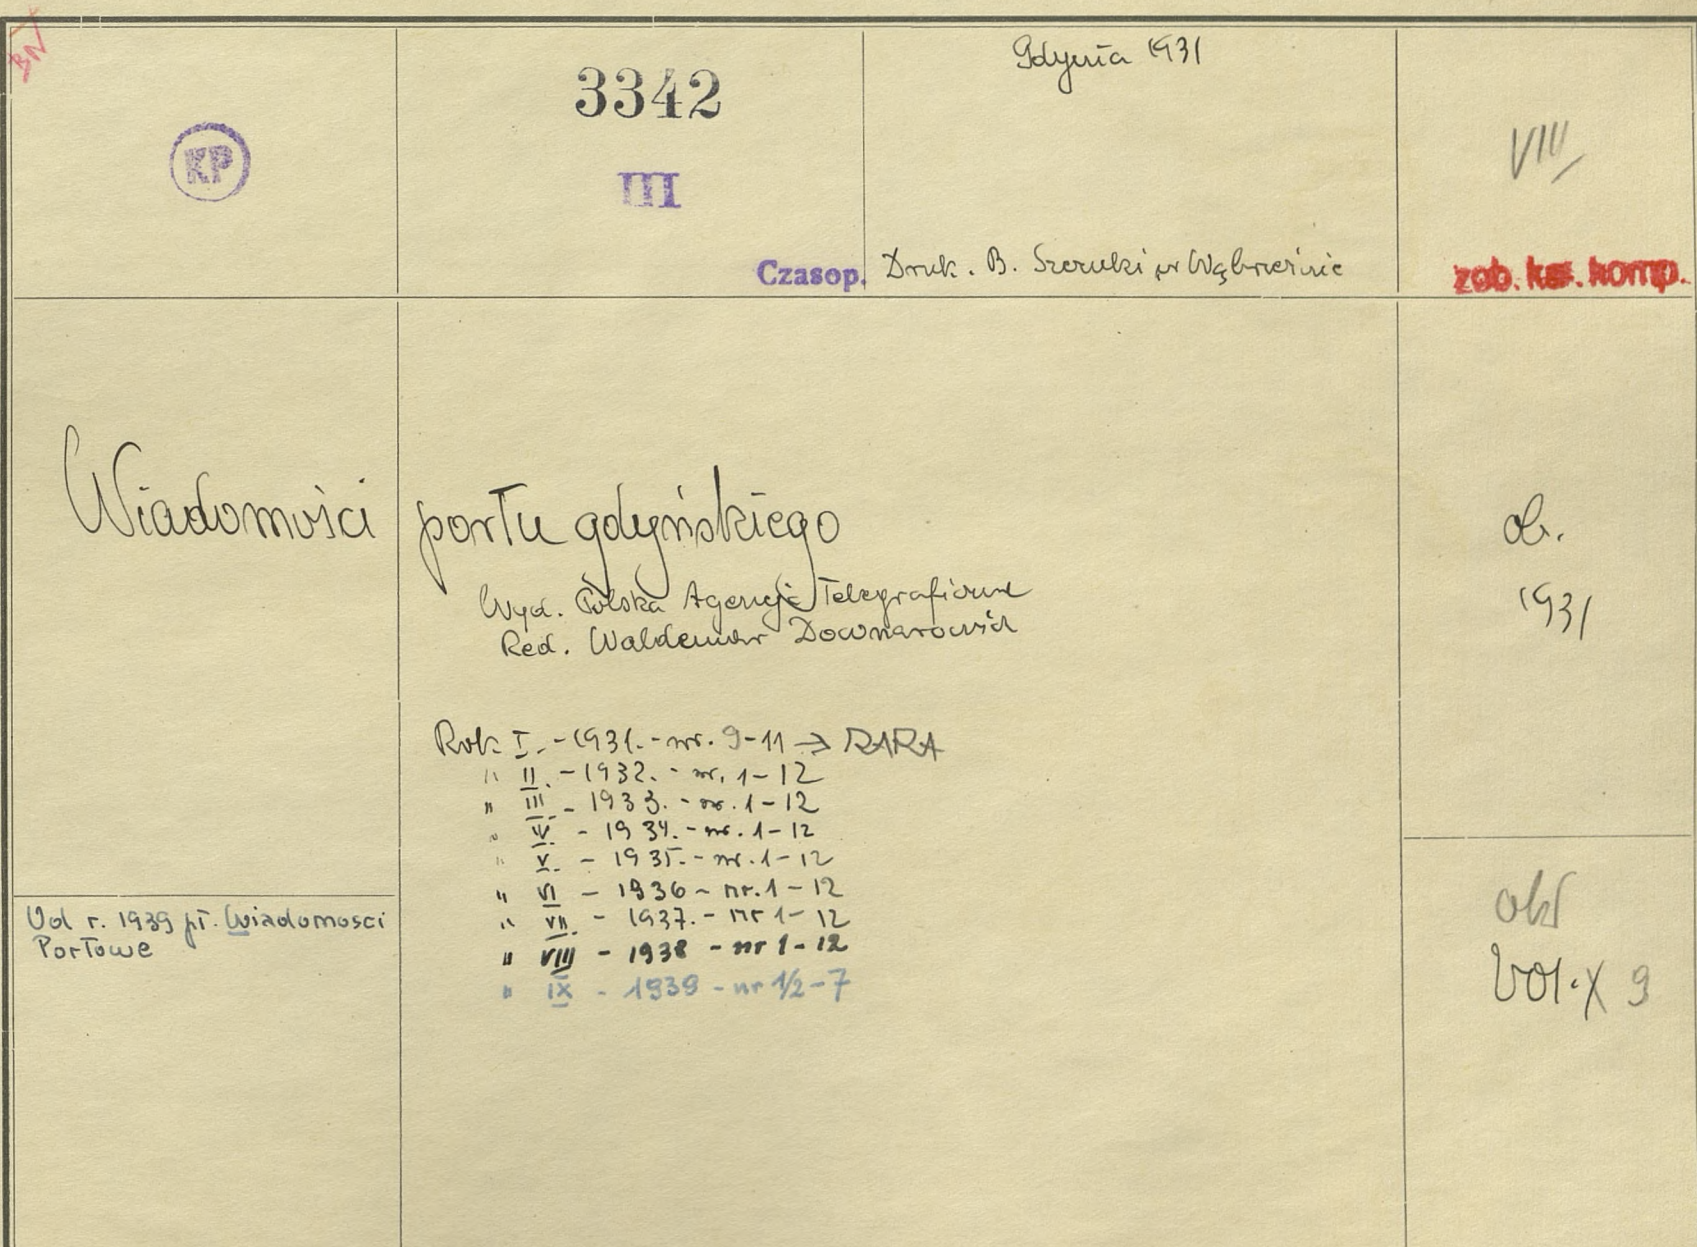 BN
Gdynia 1931
3342
KP
III
VIII
Czasop.
Druk. B. Szczuki w Wąbrzeźnie
zob. ks. komp.
Wiadomości portu gdyńskiego
Wyd. Polska Agencja Telegraficzna
Red. Waldemar Downarowicz
ob.
1931
Rok I. - 1931. - nr. 9-11 → RARA
" II. - 1932. - nr. 1-12
" III. - 1933. - nr. 1-12
" IV. - 1934. - nr. 1-12
" V. - 1935. - nr. 1-12
" VI - 1936 - nr. 1-12
" VII. - 1937. - nr 1-12
" VIII - 1938 - nr 1-12
" IX - 1939 - nr 1/2-7
Od r. 1939 pt. Wiadomosci
Portowe
Vol. X 9